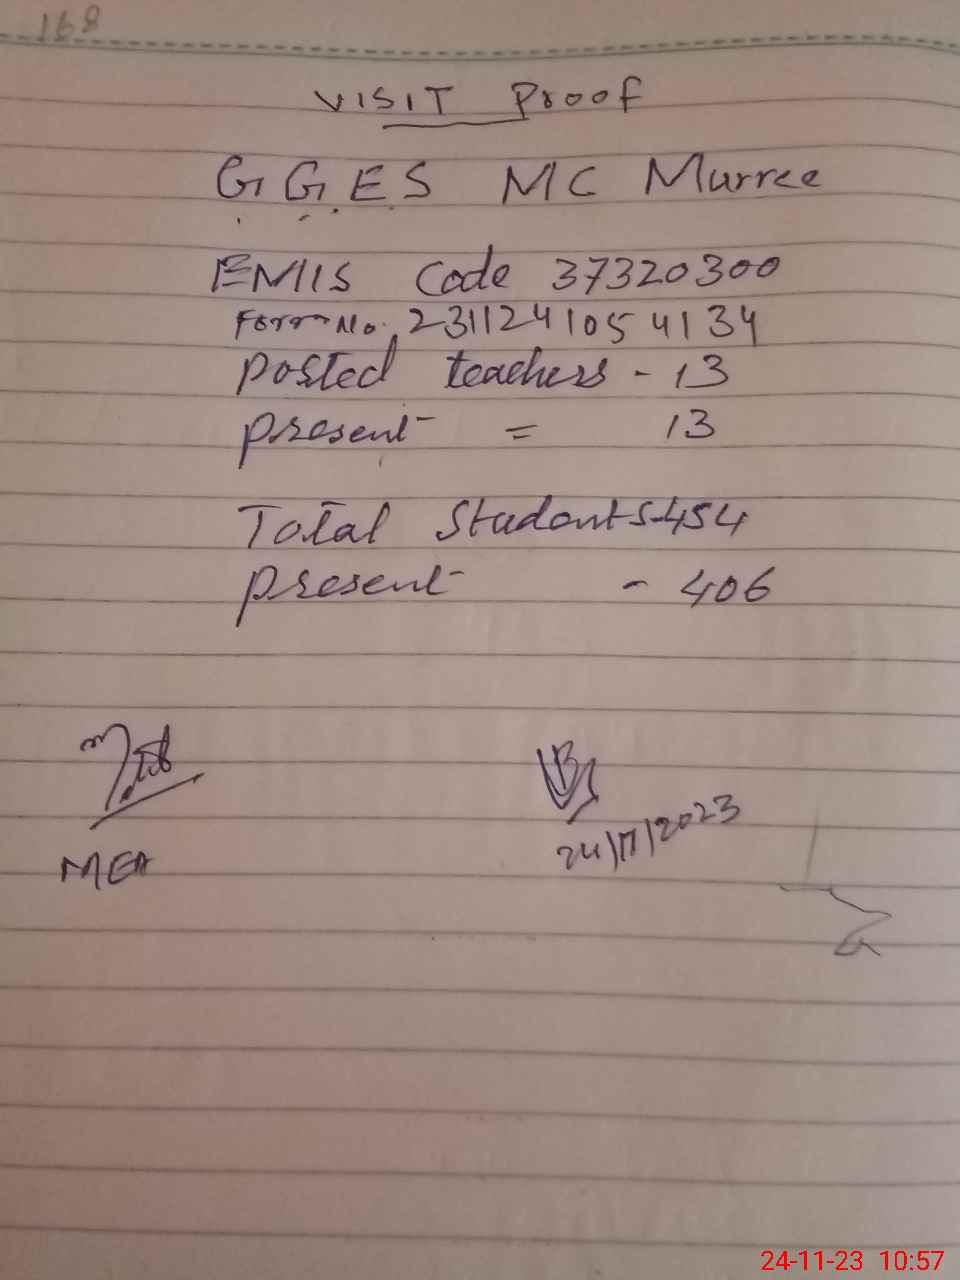 168
VISIT Proof
G.G.E.S MC Murree
EMIS Code 37320300
Form No. 2311241054134
Posted teachers - 13
present = 13
Total Students-454
present - 406
MEA
24/11/2023
24-11-23 10:57